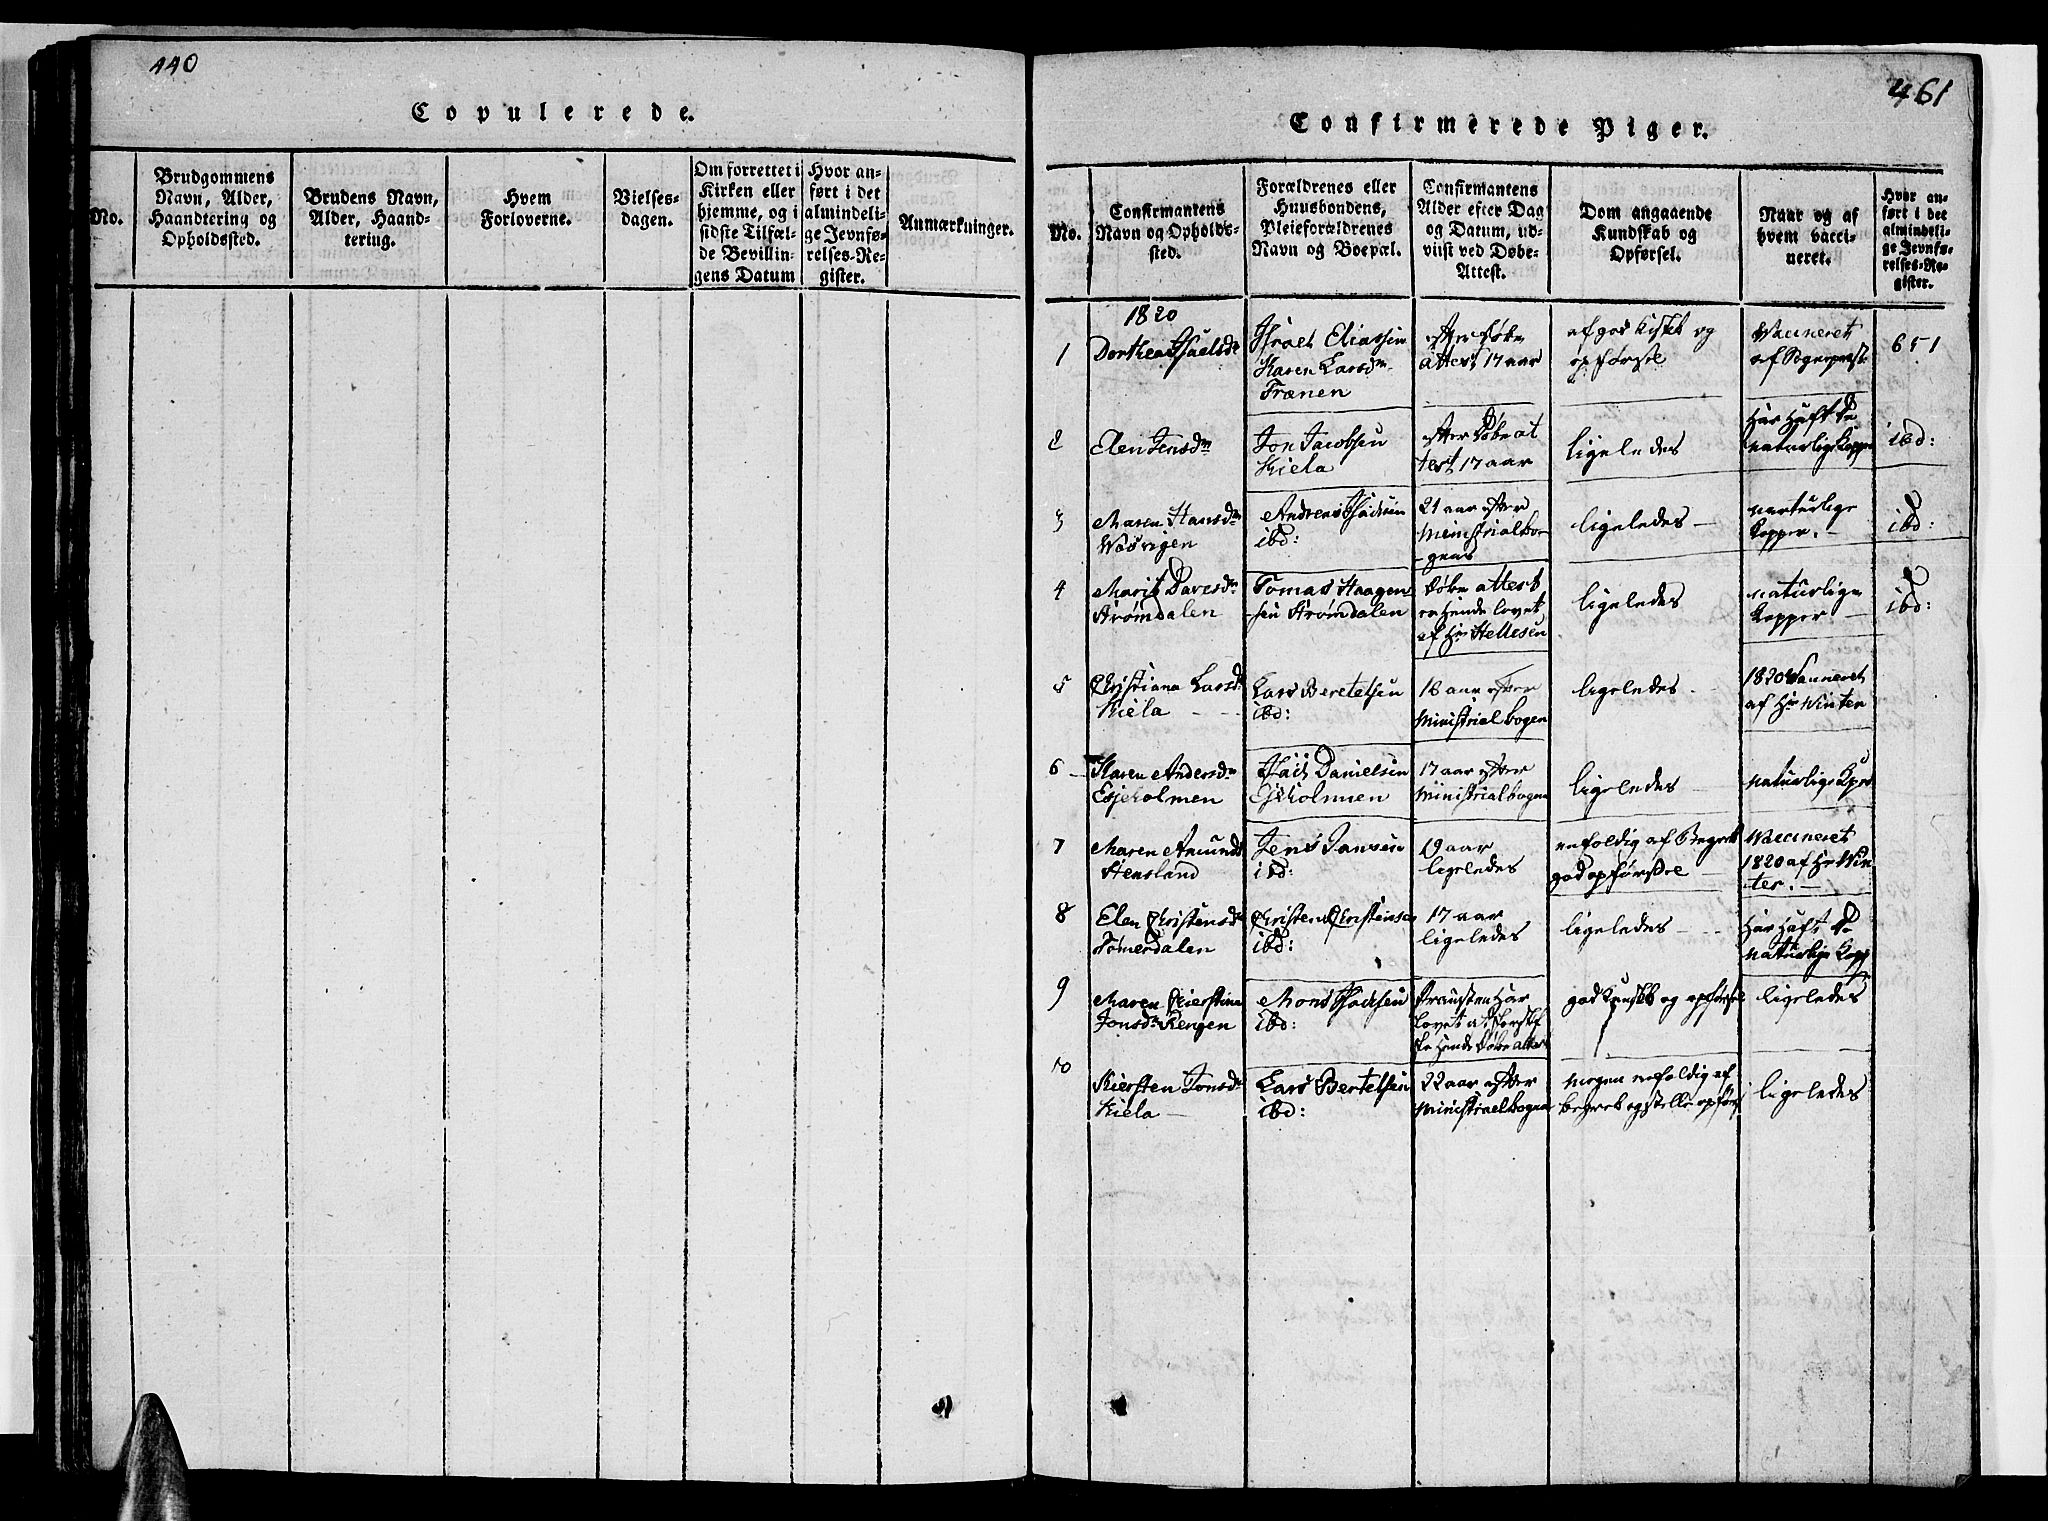 440
Copulerede.
No.
Brudgommens
Navn, Alder,
Haandtering og
Opholdssted.
Brudens Navn,
Alder, Haand-
tering.
Hvem
Forloverne.
Vielses-
dagen.
Om forrettet i
Kirken eller
hjemme, og i
sidste Tilfæl-
de Bevillin-
gens Datum
Hvor an-
ført i det
almindeli-
ge Jevnfø-
relses-Re-
gister.
Anmærkninger.
461
Confirmerede Piger.
No.
Confirmantens
Navn og Opholds-
sted.
Forældrenes eller
Huusbondens,
Pleieforældrenes
Navn og Boepæl.
Confirmantens
Alder efter Dag
og Datum, ud-
viist ved Døbe-
Attest.
Dom angaaende
Kundskab og
Opførsel.
Naar og af
hvem vacci-
neret.
Hvor an-
ført i det
almindeli-
ge Jevnfø-
relses-Re-
gister.
1820
1
Dorthea
Israel Eliassen
Karen Larsdr
Trænen
efter Døbe
attest 17 aar
af god
og
opførsel
Vacineret
af Sogneprest
651
2
Elen Jensdr
Jon Jacobsen
Kiela
efter Døbe at
test 17 aar
ligeledes
Har Haft De
naturlige Kopper
ibd:
3
Maren Hansdr
Waavigen
Andreas
ibd:
21 aar efter
Ministrialbo-
gens
ligeledes
naturlige
Kopper.
ibd:
4
Marit
Strømdalen
Tomas Haagen
sen Strømdalen
Døbe attest
er Hende lovet
af Hr Hellesen
ligeledes
naturlige
Kopper
ibd:
5
Christiana Larsdr
Kiela
Lars Beretelsen
ibd:
16 aar efter
Ministrialbogen
ligeledes
1820 Vacineret
af Hr Winter
6
Karen Andersdr
Esjeholmen
Danielsen
Esjeholmen
17 aar efter
Ministrialbogen
ligeledes
naturlige
7
Maren Amunds
Stensland
Jens Jansen
ibd:
19 aar
ligeledes
enfoldig af Begreb
god opførsel
Vaccineret
1820 af Hr Win
ter.
8
Elen Christensdr
Tømerdalen
Christen Christensen
ibd:
17 aar
ligeledes
ligeledes
Har Haft De
naturlige Kopp
9
Maren Kierstina
Jonsdr Rengen
Mons Isachsen
ibd:
Præusten Har
lovet at
Hende Døbe attest
god Kunskb og opførsel
ligeledes
10
Kiersten Jonsdr
Kiela
Lars Bertelsen
ibd:
22 aar efter
Ministrialbogen
megen enfoldig af
begreb og stille opførs
ligeledes